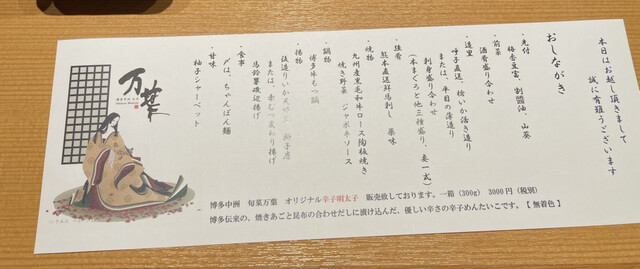 本日はお越し頂きまして
誠に有難うございます
おしながき
・先付
梅香豆富、割醤油、山葵
・前菜
酒肴盛り合わせ
・造里
呼子直送、槍いか活き造り
または、平目の薄造り
刺身盛り合わせ
(本まぐろと他三種盛り、妻一式)
・強肴
熊本直送鮮馬刺し 薬味
・焼物
九州産黒毛和牛ロース陶板焼き
焼き野菜 ジャポネソース
・鍋物
博多牛もつ鍋
・揚物
後造りいか天ぷら
または、
馬鈴薯磯辺揚げ
・食事
〆は、ちゃんぽん麺
・甘味
柚子シャーベット
万葉
博多中洲 旬菜万葉 オリジナル辛子明太子 販売致しております。一箱(300g) 3000円(税別)
博多伝来の、焼きあごと昆布の合わせだしに漬け込んだ、優しい辛さの辛子めんたいこです。【 無着色 】